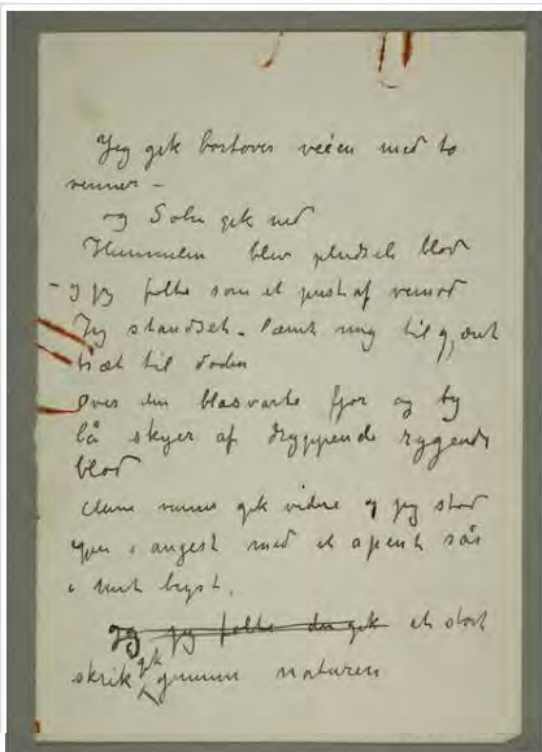 Jeg gik bortover veien med to
venner –
og Solen gik ned
Himmelen blev pludseli blod
– og jeg følte som et pust af vemod
Jeg standset – lænet mig til gjærdet
træt til døden
Over den blåsvarte fjor og by
lå skyer af dryppende rygende
blod
Mine venner gik videre og jeg stod
igjen i angest med et åpent sår
i mit bryst.
jeg følte der gik et stort
skrik gik gjennem naturen